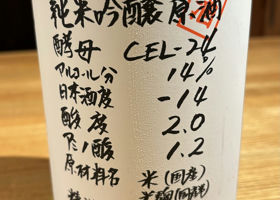 純米吟醸原酒
酵母 CEL-24
アルコール分 14%
日本酒度 -14
酸度 2.0
アミノ酸 1.2
原材料名 米(国産)
米麹(国産米)
精